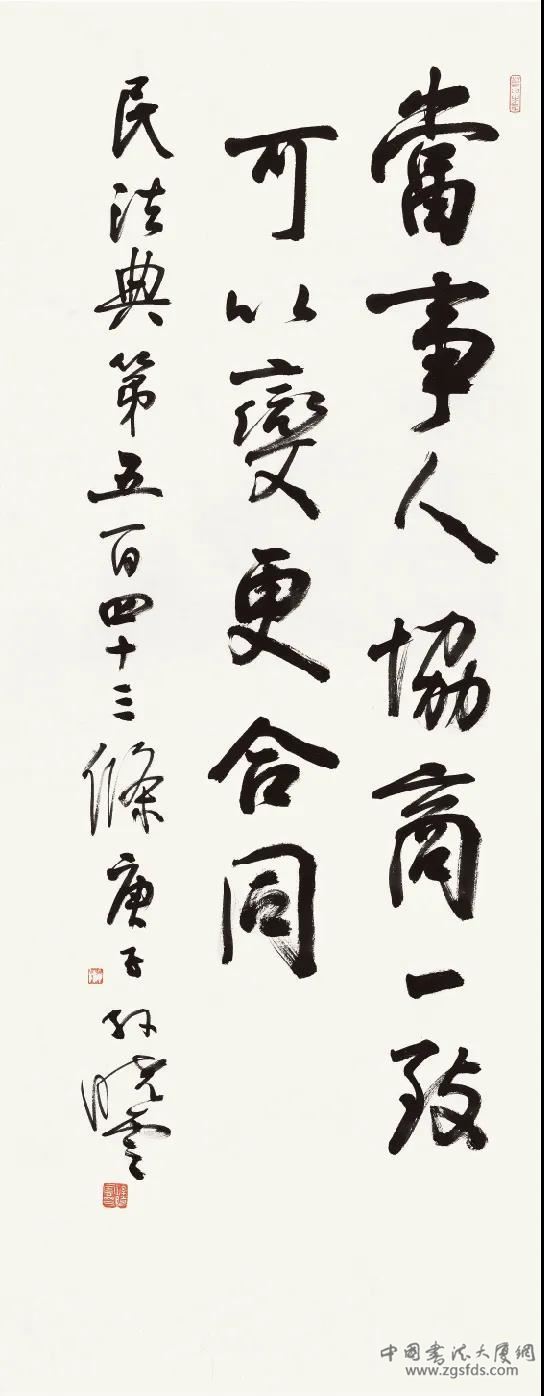 當事人協商一致
可以變更合同
民法典第五百四十三條 庚子 孙曉雲
中國書法大厦網
www.zgsfds.com